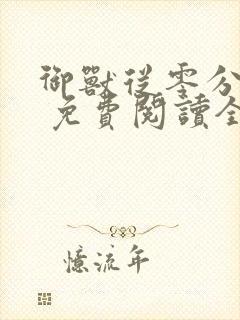 御獸從零分
免費閱讀全
憶流年